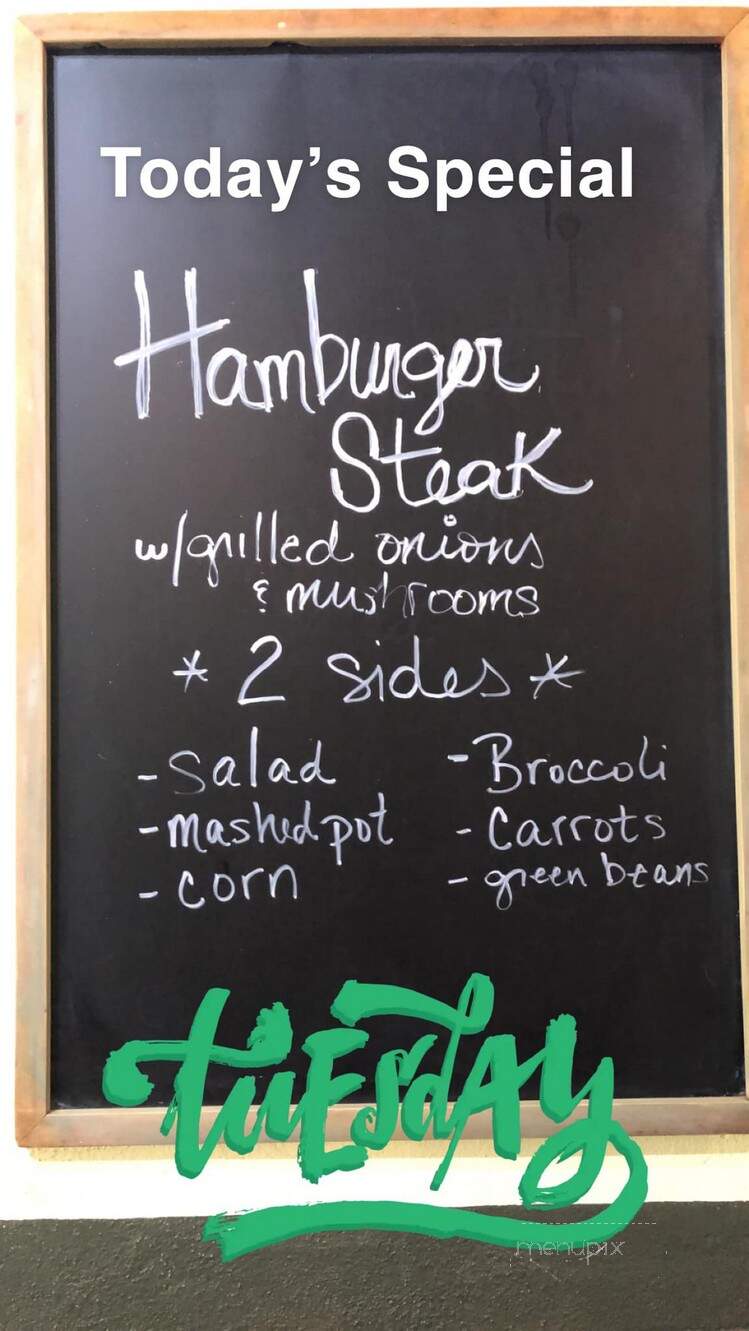 Today's Special
Hamburger
Steak
w/grilled onions
& mushrooms
* 2 sides *
- Salad - Broccoli
- mashed pot - Carrots
- corn - green beans
tuEsdAy
menupix